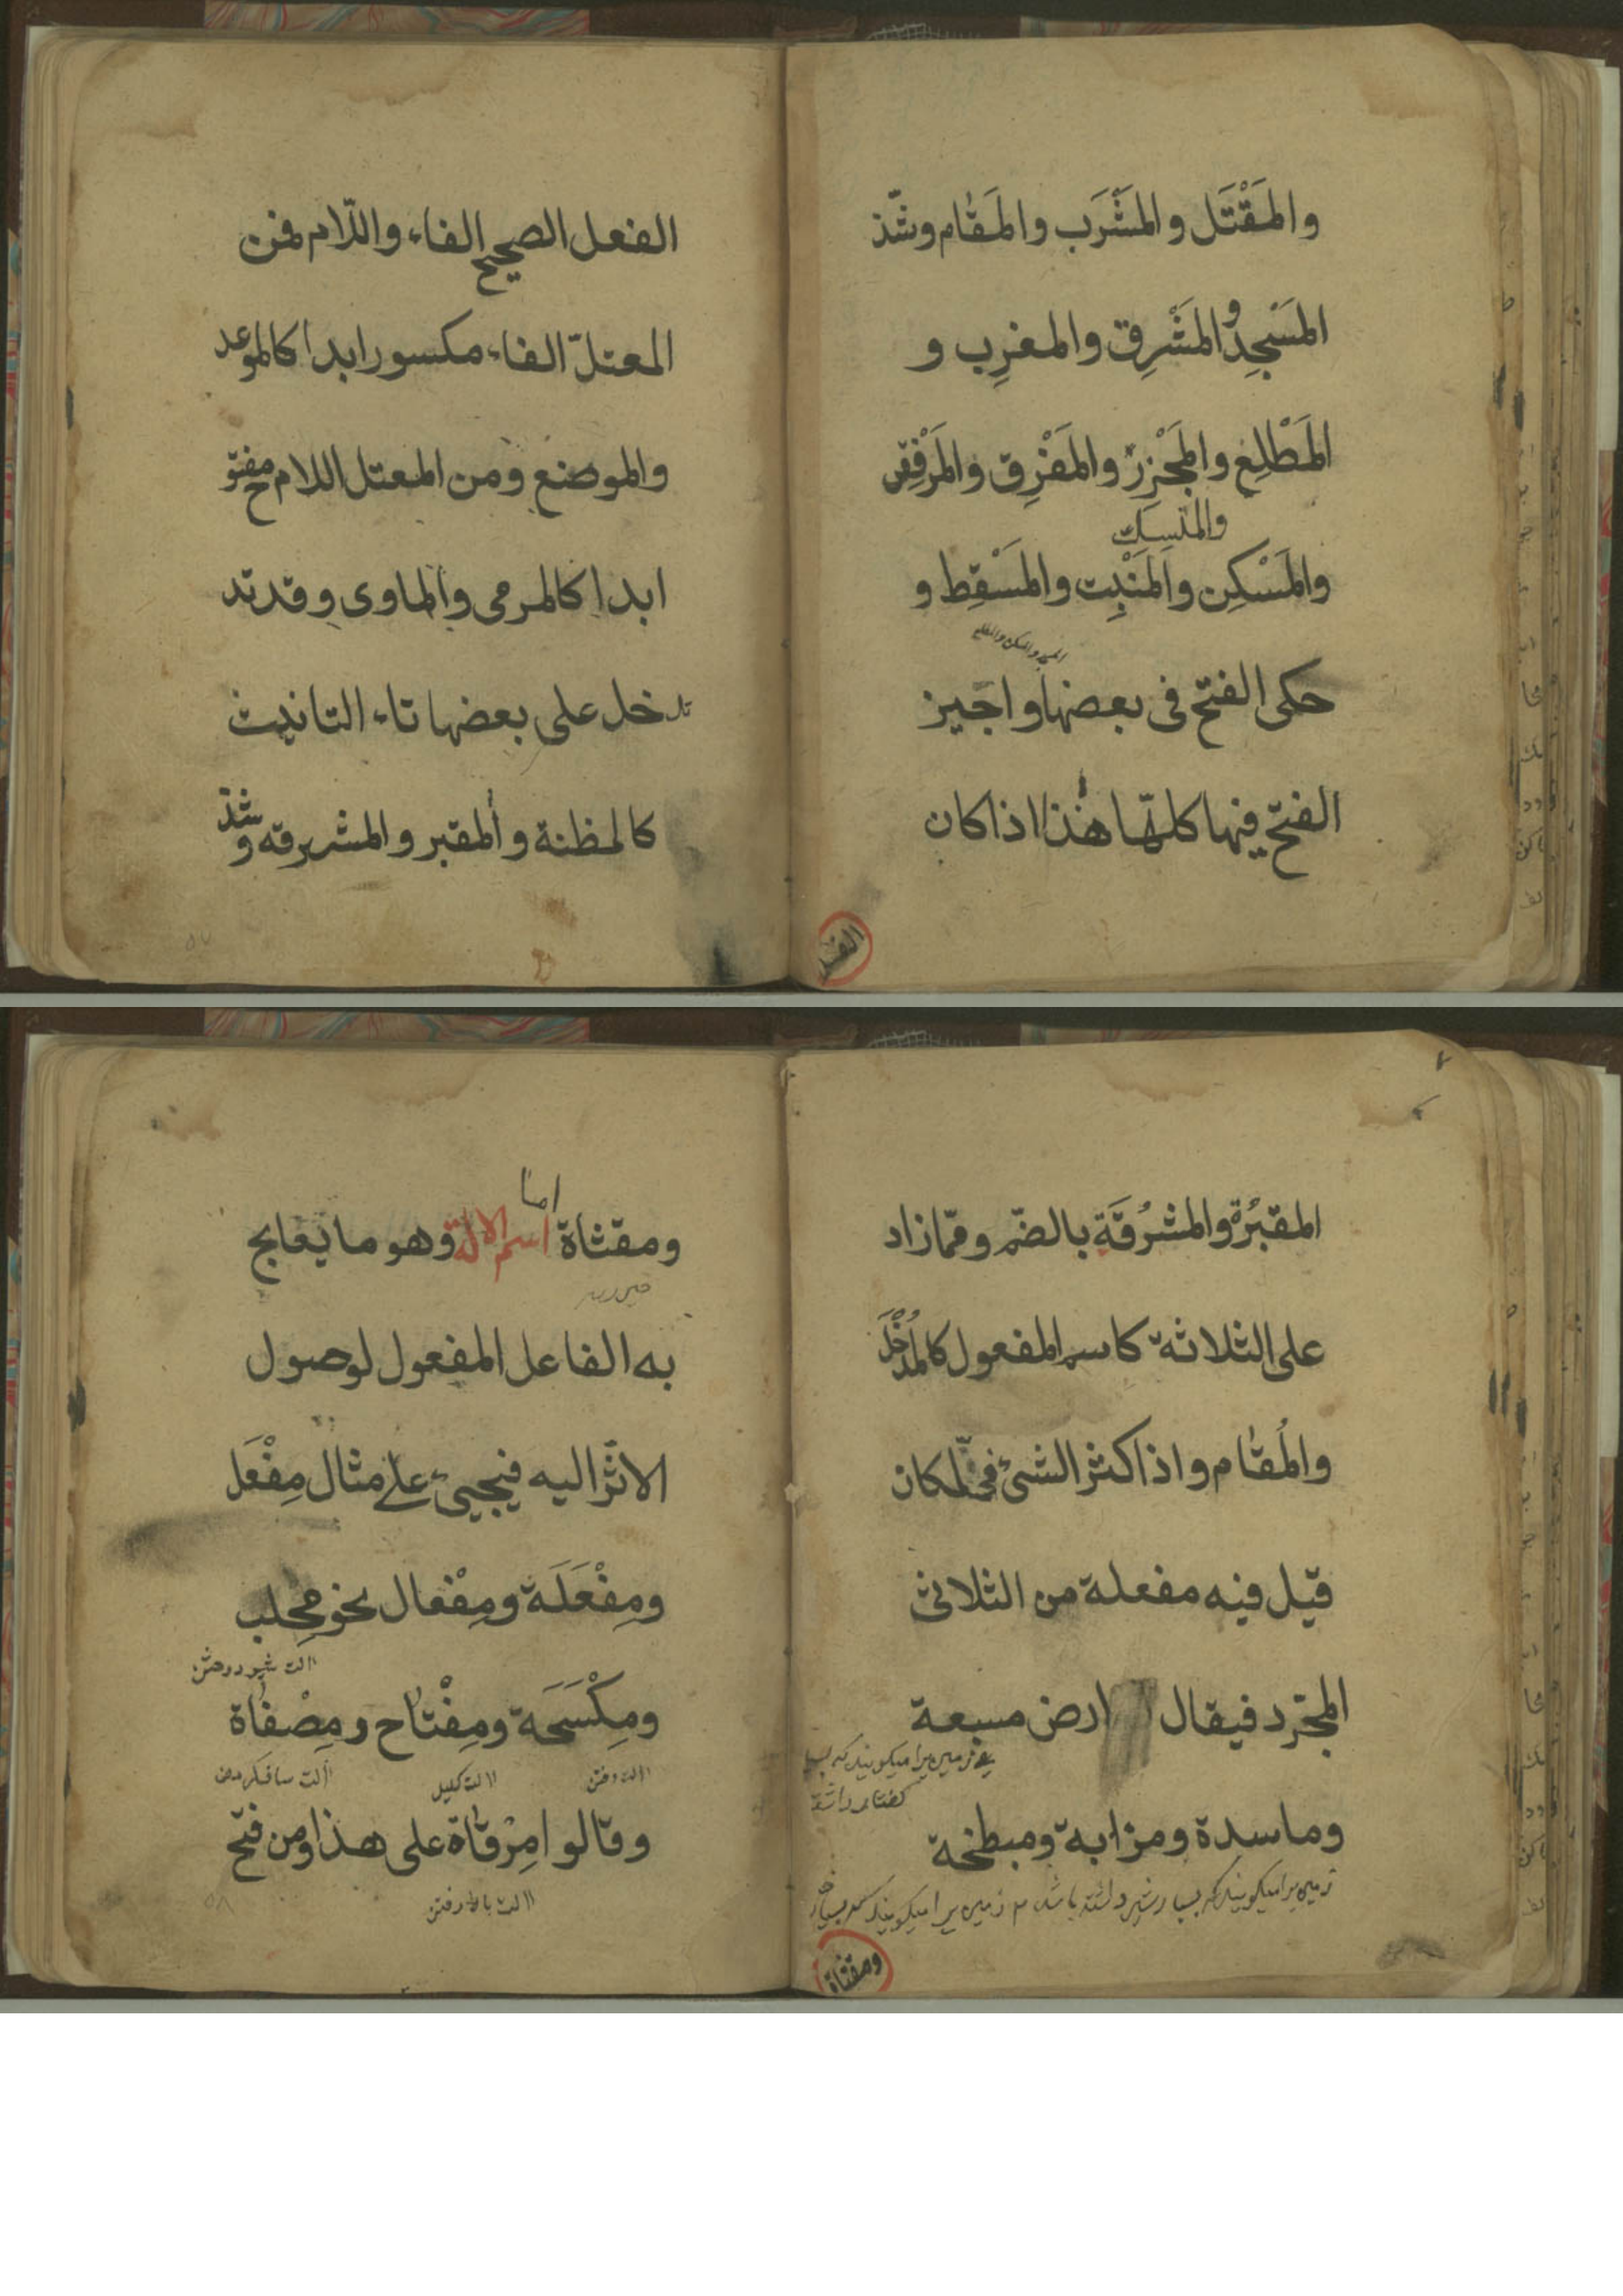 والمَقْتَل والمَشْرَب والمَقام وشّذ
المَسْجِد والمَشْرِق والمغرِب و
المَطْلِع والمَجْزِر والمَفْرِق والمَرْفِق
والمنسِك
والمَسْكِن والمَنْبِت والمَسْقِط و
حكى الفتح فى بعضها واجَيز
الفتح فيها كلّها هذا اذا كان
الفعل الصحيح الفاء واللّام فمن
المعتلّ الفاء مكسور ابدا كالموعد
والموضع ومن المعتل اللام مفتوح
ابدا كالمرمى والماوى وقد تد
تدخل على بعضها تاء التانيث
كالمظنة والمقبر والمشرقه وشذ
المقبُرة والمشرُقَة بالضّم وممّا زاد
على الثلاثة كاسم المفعول كالمُدْخَل
والمُقام واذا كثر الشئ فى المكان
قيل فيه مفعلة من الثلاثى
المجرّد فيقال ارض مسبعة
وماسدة ومزابة ومبطخة
زمين را ميكويند كه بسيار شير داشته باشد
ومقثاة
اما
ومقثاة اسم الالة وهو ما يعالج
به الفاعل المفعول لوصول
الاثر اليه فيجيئ على مثال مِفْعَل
ومِفْعَلَة ومِفْعال نحو مِحلب
الت شير دوختن
ومِكْسَحَة ومِفْتاح ومِصْفاة
الت رفتن الت كليد الت صاف كردن
وقالوا مِرْقاة على هذا ومن فتح